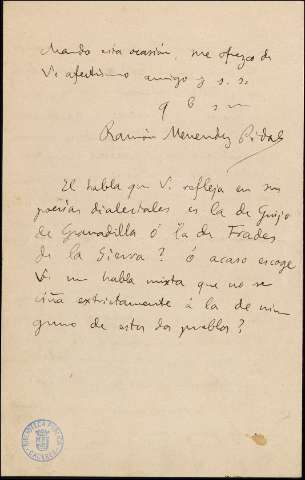 chando esta ocasión, me ofrezco de
V. afectísimo amigo y s. s.
q b s m
Ramón Menéndez Pidal
El habla que V. refleja en sus
poesías dialectales es la de Guijo
de Granadilla ó la de Frades
de la Sierra? ó acaso escoge
V. un habla mixta que no se
ciña extrictamente á la de nin
guno de estos dos pueblos?
BIBLIOTECA PUBLICA
CACERES